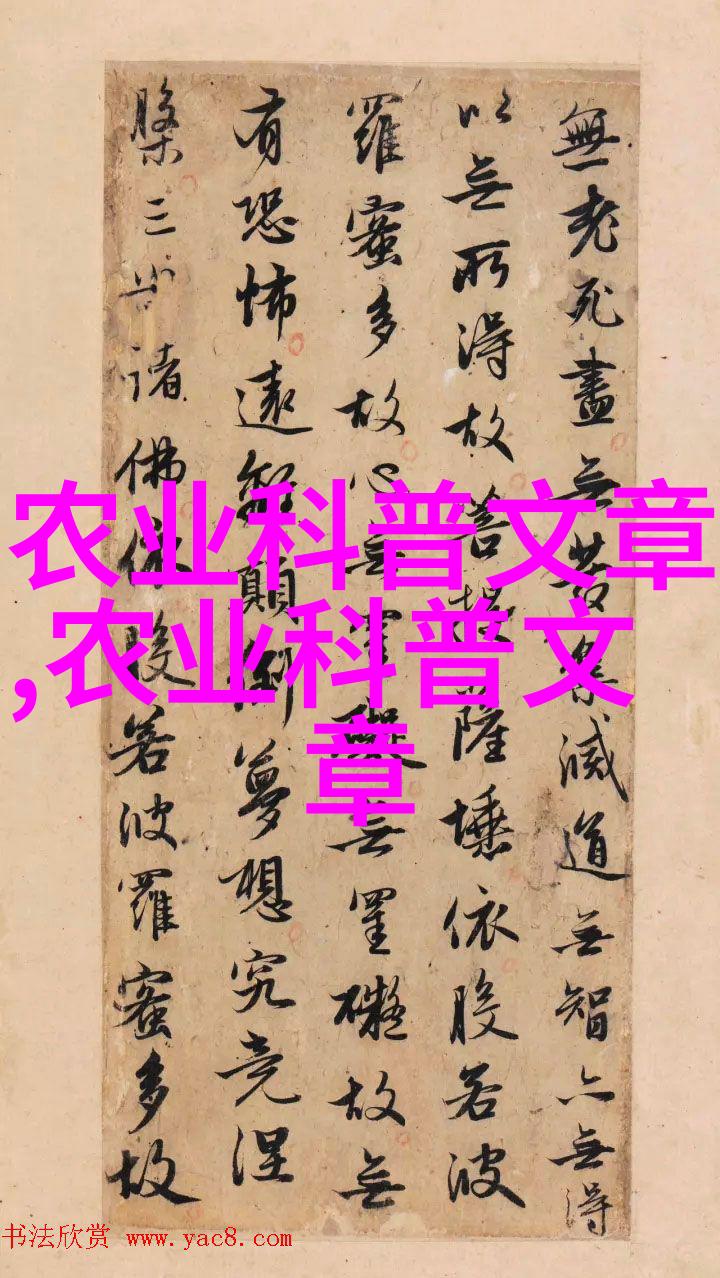 無老死盡無苦集滅道無智亦無得
以無所得故菩提薩埵依般若波
羅蜜多故心無罣礙無罣礙故無
有恐怖遠離顛倒夢想究竟涅
槃三世諸佛依般若波羅蜜多故
农业科普文章
,农业科普文
章
书法欣赏 www.yac8.com